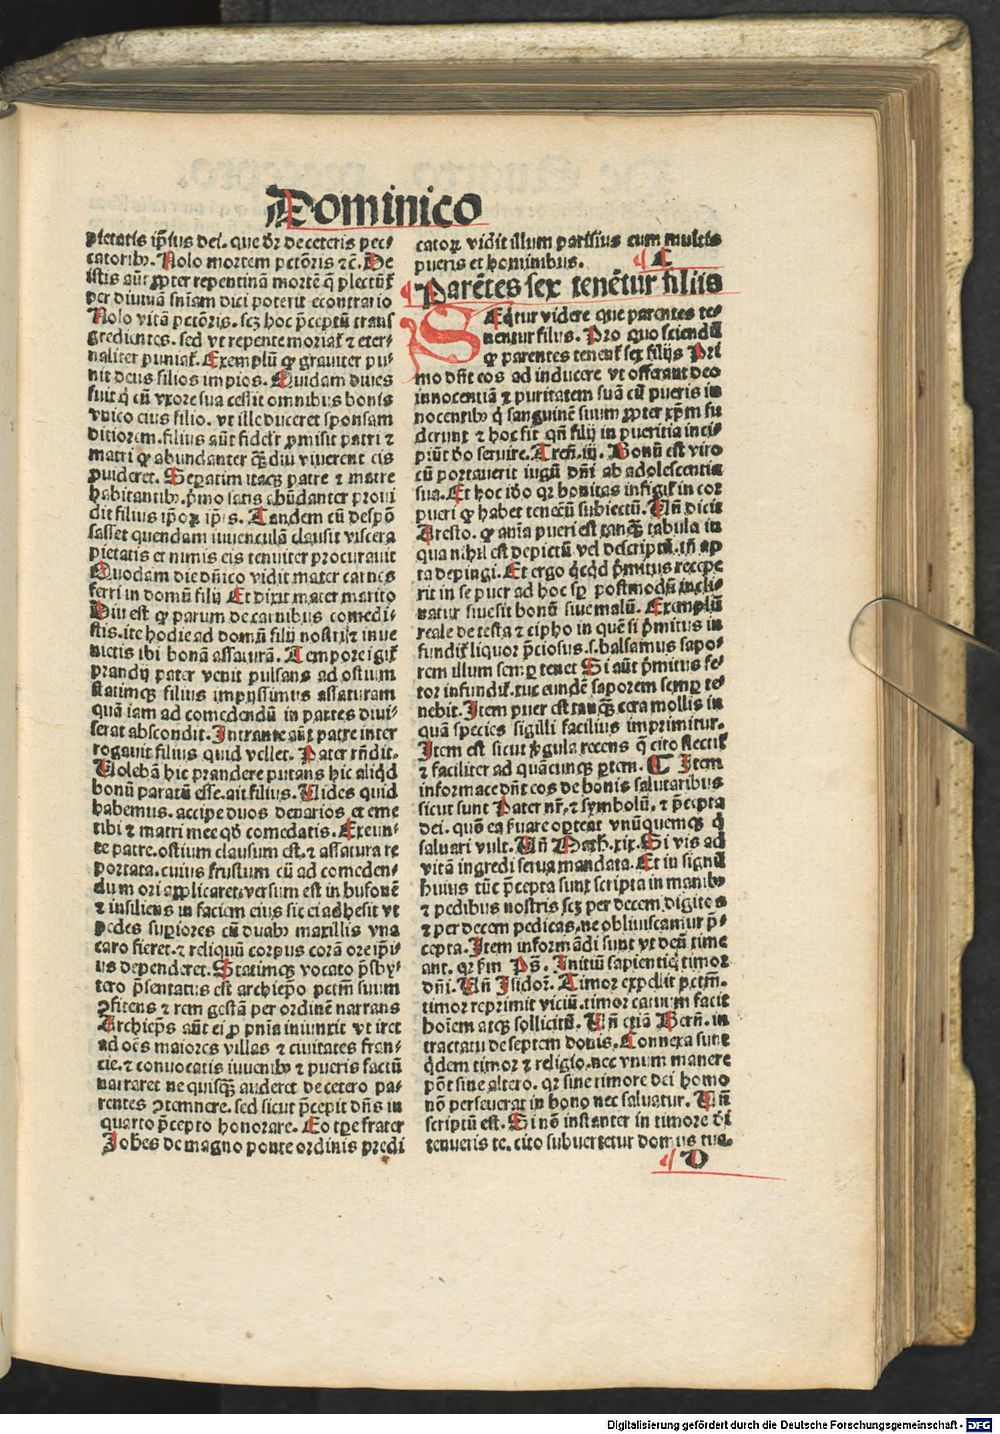 Dominico
pietatis ip̄ius dei. que dr̄ de ceteris pec⸗
catorib⁹. Nolo mortem pctōris ⁊c̄. De
istis aūt ꝓpter repentinā mortē q̄ plectūt̄
per diuinā snīam dici poterit econtrario
Nolo vitā pctōris. scꝫ hoc p̄ceptū trans
gredientes. sed vt repente moriat̄ ⁊ eter⸗
naliter puniat̄. Exemplū ꝙ grauiter pu⸗
nit deus filios impios. Quidam diues
fuit q̇ cū vxore sua cessit omnibus bonis
vnico eius filio. vt ille duceret sponsam
ditiorem. filius aūt fidelr̄ ꝓmisit patri ⁊
matri ꝙ abundanter qꝫdiu viuerent eis
ꝓuideret. Seꝑatim itaqꝫ patre ⁊ matre
habitantib⁹. p̄mo satis abūdanter proui
dit filius ipoꝝ ip̄is. Tandem cū despō
sasset quendam iuuenculā clausit viscera
pietatis et nimis eis tenuiter procurauit
Quodam die dn̄ico vidit mater carnes
ferri in domū filij Et dixit mater marito
Diu est ꝙ parum de carnibus comedi⸗
stis. ite hodie ad domū filij nostri ⁊ inue
nietis ibi bonā assaturā. Tempore igit̄
prandij pater venit pulsans ad ostium
statimqꝫ filius impyssimus assaturam
quā iam ad comedendū in partes diui⸗
serat abscondit. Intrante aūt patre inter
rogauit filius quid vellet. Pater rn̄dit.
Volebā hic prandere putans hic aliqd̄
bonū paratū esse. ait filius. Uides quid
habemus. accipe duos denarios et eme
tibi ⁊ matri mee qd̄ comedatis. Exeun⸗
te patre. ostium clausum est. ⁊ assatura re
portata. cuius frustum cū ad comeden⸗
dum ori applicaret. versum est in bufonē
⁊ insiliens in faciem eius sic ei adhesit vt
pedes supiores cū duab⁹ maxillis vna
caro fieret. ⁊ reliquū corpus corā ore ip̄i⸗
us dependeret. Statimqꝫ vocato p̄sby⸗
tero p̄sentatus est archiep̄o pctm̄ suum
ꝯfitens ⁊ rem gestā per ordinē narrans
Archiep̄s aūt ei ꝓ pn̄ia iniunxit vt iret
ad oēs maiores villas ⁊ ciuitates fran⸗
cie. ⁊ conuocatis iuuenib⁹ ⁊ pueris factū
narraret ne quisqꝫ auderet de cetero pa⸗
rentes ꝯtemnere. sed sicut p̄cepit dn̄s in
quarto p̄cepto honorare. Eo tꝑe frater
Johēs de magno ponte ordinis predi
catoꝝ vidit illum parisius cum multis
pueris et hominibus. ¶ C
¶ Parētes sex tenētur filiis
SEq̄tur videre que parentes te⸗
nentur filiis. Pro quo sciendū
ꝙ parentes tenent̄ sex filijs Pri
mo dn̄t eos ad inducere vt offerant deo
innocentiā ⁊ puritatem suā cū pueris in
nocentib⁹ q̇ sanguinē suum ꝓpter xp̄m fu
derunt ⁊ hoc fit qn̄ filij in pueritia inci⸗
piūt deo seruire. Tren̄. iij. Bonū est viro
cū portauerit iugū dn̄i ab adolescentia
sua. Et hoc ideo qr bonitas infigit̄ in cor
pueri ꝙ habet tenerū subiectū. Un̄ dicit
Aresto. ꝙ anīa pueri est tanqꝫ tabula in
qua nihil est depictū vel descriptū. tn̄ ap
ta depingi. Et ergo qcqd p̄mitus recepe
rit in se puer ad hoc sp̄ postmodū incli⸗
natur siue sit bonū siue malū. Exemplū
reale de testa ⁊ cipho in quē si p̄mitus in
fundit̄ liquor p̄ciosus. s. balsamus sapo⸗
rem illum semꝑ tenet Si aūt p̄mitus fe⸗
tor infundit̄. tuc eundē saporem semꝑ te⸗
nebit. Item puer est tanqꝫ cera mollis in
quā species sigilli facilius imprimitur.
Item est sicut v̄gula recens q̄ cito flectit̄
⁊ faciliter ad quācunqꝫ ꝑtem. ¶ Item
informare dn̄t eos de bonis salutaribus
sicut sunt Pater nr̄. ⁊ symbolū. ⁊ p̄cepta
dei. quō ea ẜuare oꝑteat vnūquemqꝫ q̇
saluari vult. Un̄ Math. xix. Si vis ad
vitā ingredi serua mandata. Et in signū
huius tūc p̄cepta sunt scripta in manib⁹
⁊ pedibus nostris scꝫ per decem digitos
⁊ per decem pedicas. ne obliuiscamur p̄⸗
cepta. Item informādi sunt vt deū time
ant. qr ẜm Ps̄. Initiū sapientie timor
dn̄i. Un̄ Isidor̄. Timor expellit pctm̄.
timor reprimit viciū. timor cautum facit
hoīem atqꝫ sollicitū. Un̄ etiā Bern̄. in
tractatu de septem donis. Connexa sunt
qdem timor ⁊ religio. nec vnum manere
pōt sine altero. qr sine timore dei homo
nō perseuerat in bono nec saluatur. Un̄
scriptū est. Si nō instanter in timore dn̄i
tenueris te. cito subuertetur domus tua.
¶ D
Digitalisierung gefördert durch die Deutsche Forschungsgemeinschaft - DFG